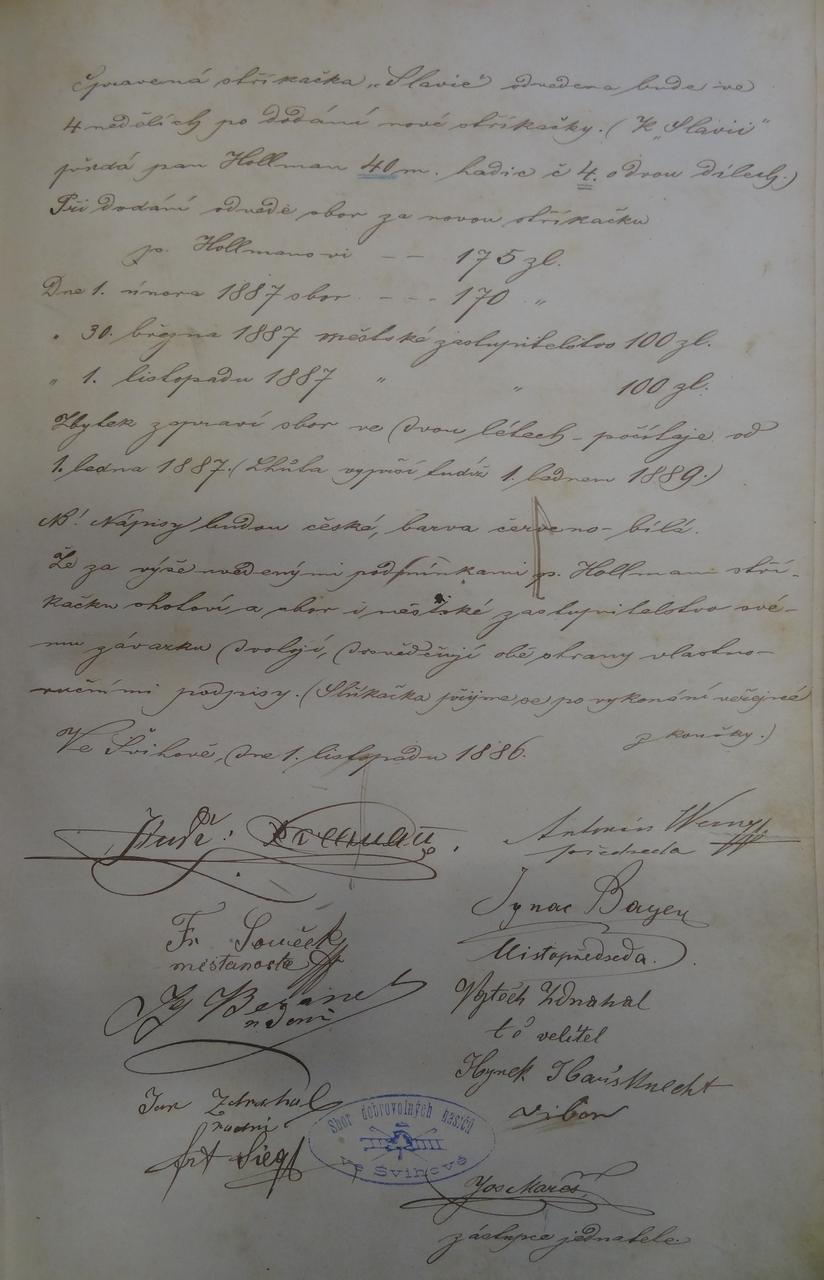 Spravená stříkačka „Slavie“ odvedena bude ve
4 nedělích po dodání nové stříkačky. (K „Slavii“
přidá pan Hollman 40 m. hadic č 4. o dvou dílech.)
Při dodání odvede sbor za novou stříkačku
p. Hollmanovi – – 175 zl.
Dne 1. února 1887 sbor – – – 170 „
„ 30. března 1887 městské zastupitelstvo 100 zl.
„ 1. listopadu 1887 „ „ 100 zl.
Zbytek zapraví sbor ve dvou létech – počítaje od
1. ledna 1887. (Lhůta vyprší tudíž 1. lednem 1889.)
NB! Nápisy budou české, barva červeno-bílá.
Že za výše uvedenými podmínkami p. Hollman stří-
kačku shotoví a sbor i městské zastupitelstvo své-
mu závazku dostojí, dosvědčují obě strany vlastno-
ručními podpisy. (Stříkačka přijme se po vykonání veřejné
zkoušky.)
Ve Švihově, dne 1. listopadu 1886.
Antonín
předseda
Ignac Bayer
Místopředseda.
Fr. Souček
měštanosta
Vojtěch Zdrahal
velitel
Hynek
Jan Zdrahal
radní
Sbor dobrovolných hasičů
ve Švihově
Jos Mareš
zástupce jednatele.